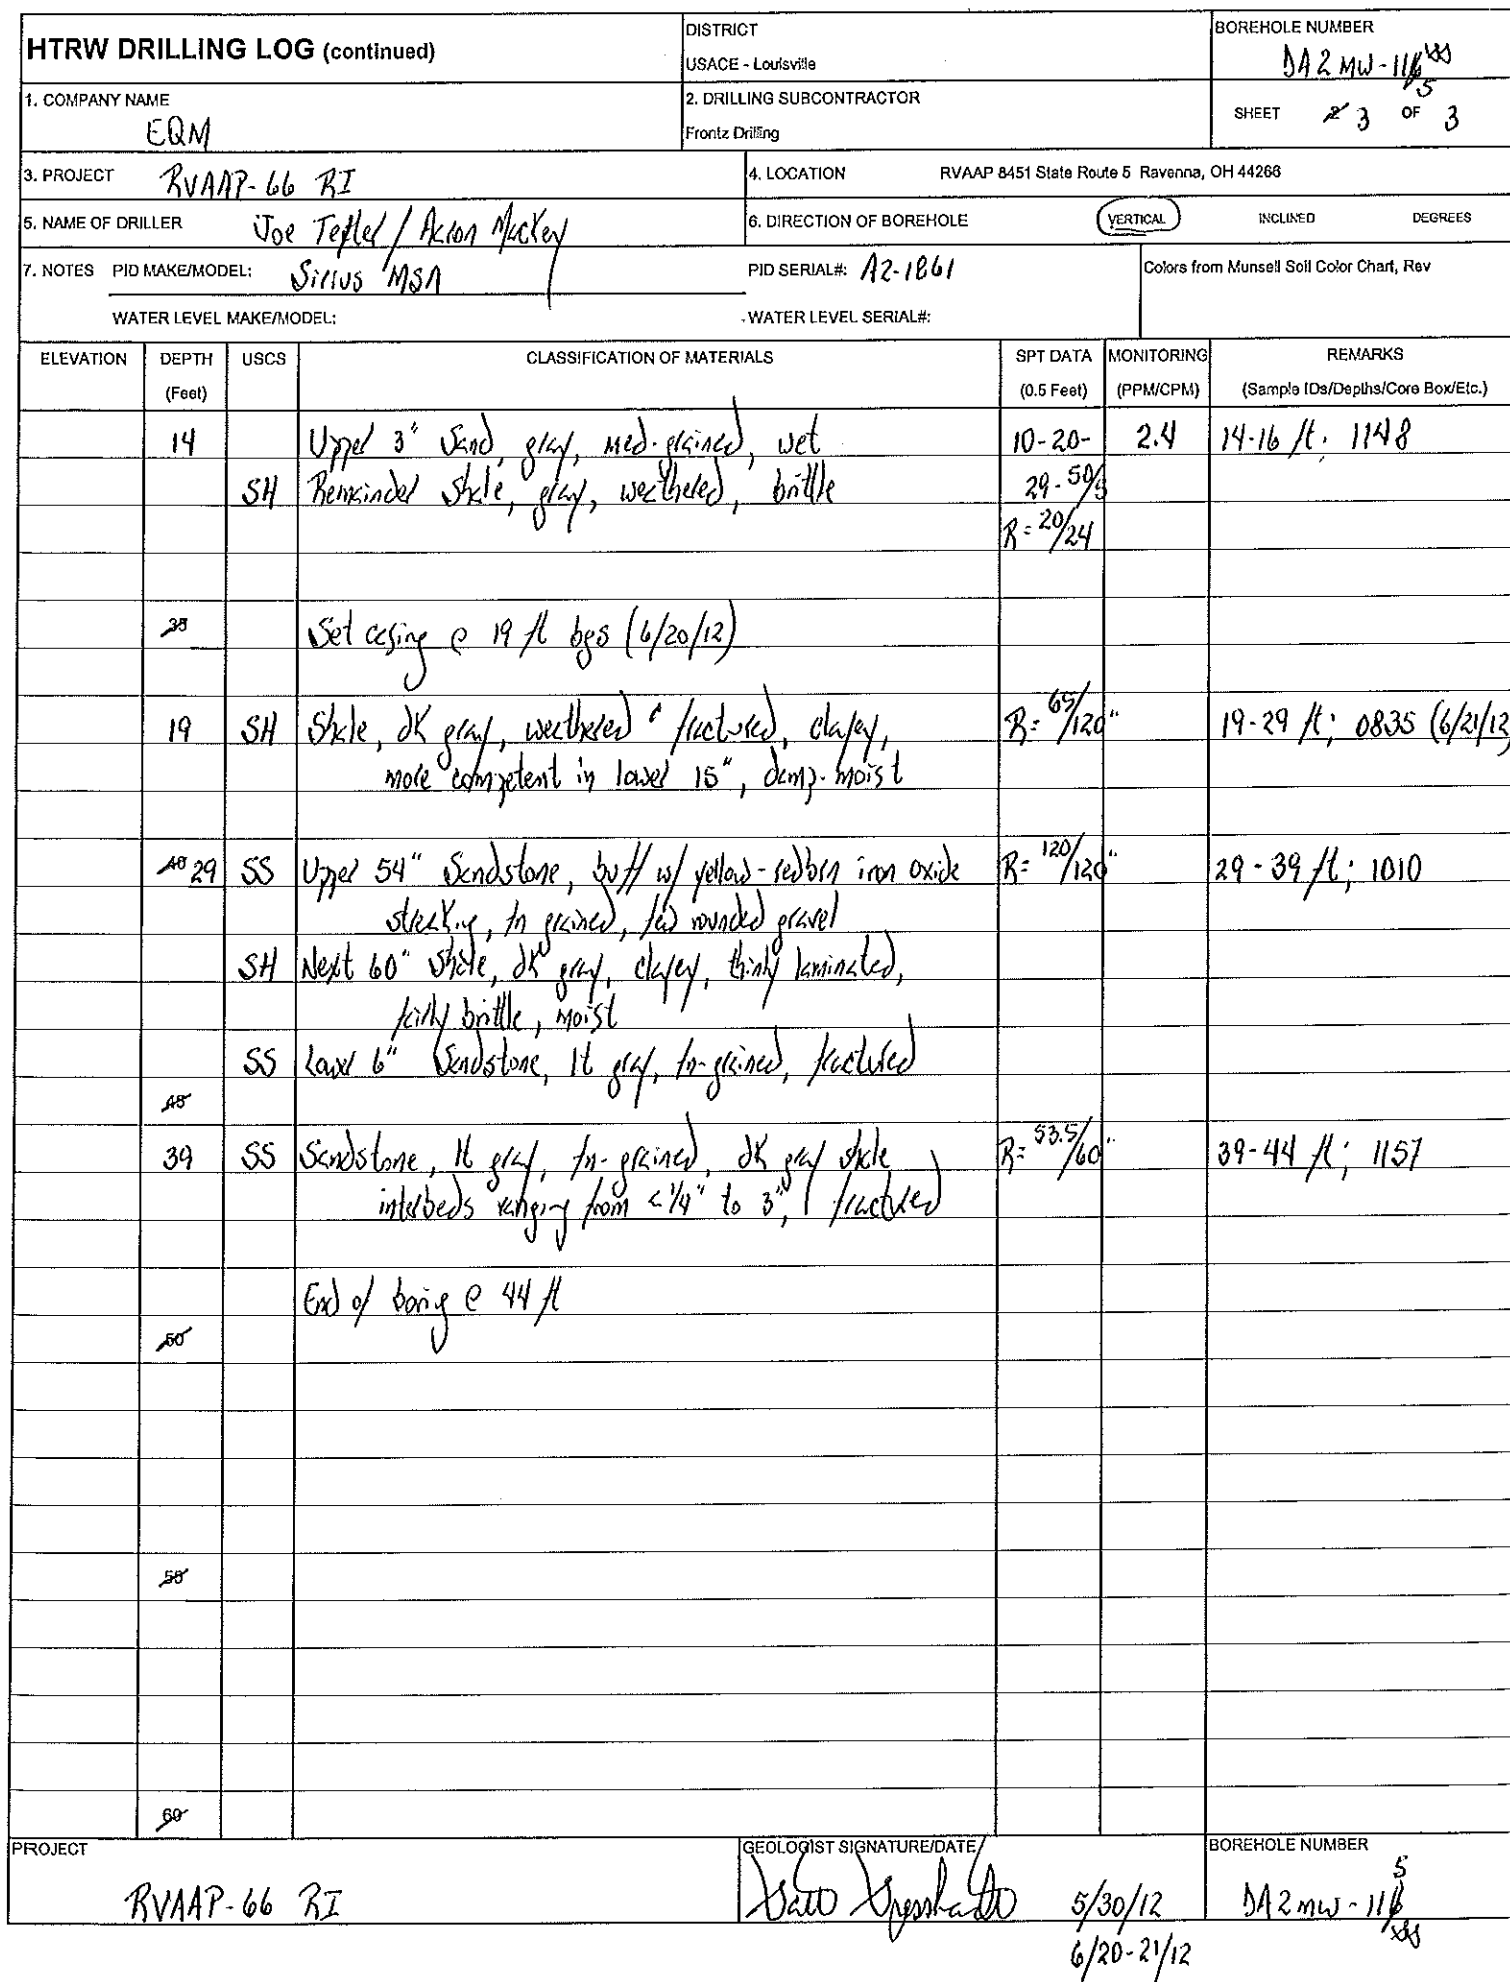 HTRW DRILLING LOG (continued)
DISTRICT
USACE - Louisville
BOREHOLE NUMBER
DA2MW-115
1. COMPANY NAME
EQM
2. DRILLING SUBCONTRACTOR
Frontz Drilling
SHEET 3 OF 3
3. PROJECT RVAAP-66 RI
4. LOCATION RVAAP 8451 State Route 5 Ravenna, OH 44266
5. NAME OF DRILLER Joe / Aaron Mackey
6. DIRECTION OF BOREHOLE VERTICAL INCLINED DEGREES
7. NOTES PID MAKE/MODEL: Sirius MSA PID SERIAL#: A2-1861
Colors from Munsell Soil Color Chart, Rev
WATER LEVEL MAKE/MODEL: WATER LEVEL SERIAL#:
ELEVATION DEPTH (Feet) USCS CLASSIFICATION OF MATERIALS SPT DATA (0.5 Feet) MONITORING (PPM/CPM) REMARKS (Sample IDs/Depths/Core Box/Etc.)
14 Upper 3" Sand, gray, med-grained, wet 10-20- 2.4 14-16 ft; 1148
SH Remainder Shale, gray, weathered, brittle 29-50/5
R=20/24
35 Set casing @ 19 ft bgs (6/20/12)
19 SH Shale, dk gray, weathered & fractured, clayey, R=65/120" 19-29 ft; 0835 (6/21/12)
more competent in lower 15", damp-moist
40 29 SS Upper 54" Sandstone, buff w/ yellow-redbrn iron oxide R=120/120" 29-39 ft; 1010
streaking, fn grained, few rounded gravel
SH Next 60" Shale, dk gray, clayey, thinly laminated,
fairly brittle, moist
SS Lower 6" Sandstone, lt gray, fn-grained, fractured
45
39 SS Sandstone, lt gray, fn-grained, dk gray shale R=53.5/60" 39-44 ft; 1157
interbeds ranging from <1/4" to 3", fractured
End of boring @ 44 ft
50
55
60
PROJECT
RVAAP-66 RI
GEOLOGIST SIGNATURE/DATE
5/30/12
6/20-21/12
BOREHOLE NUMBER
DA2MW-115